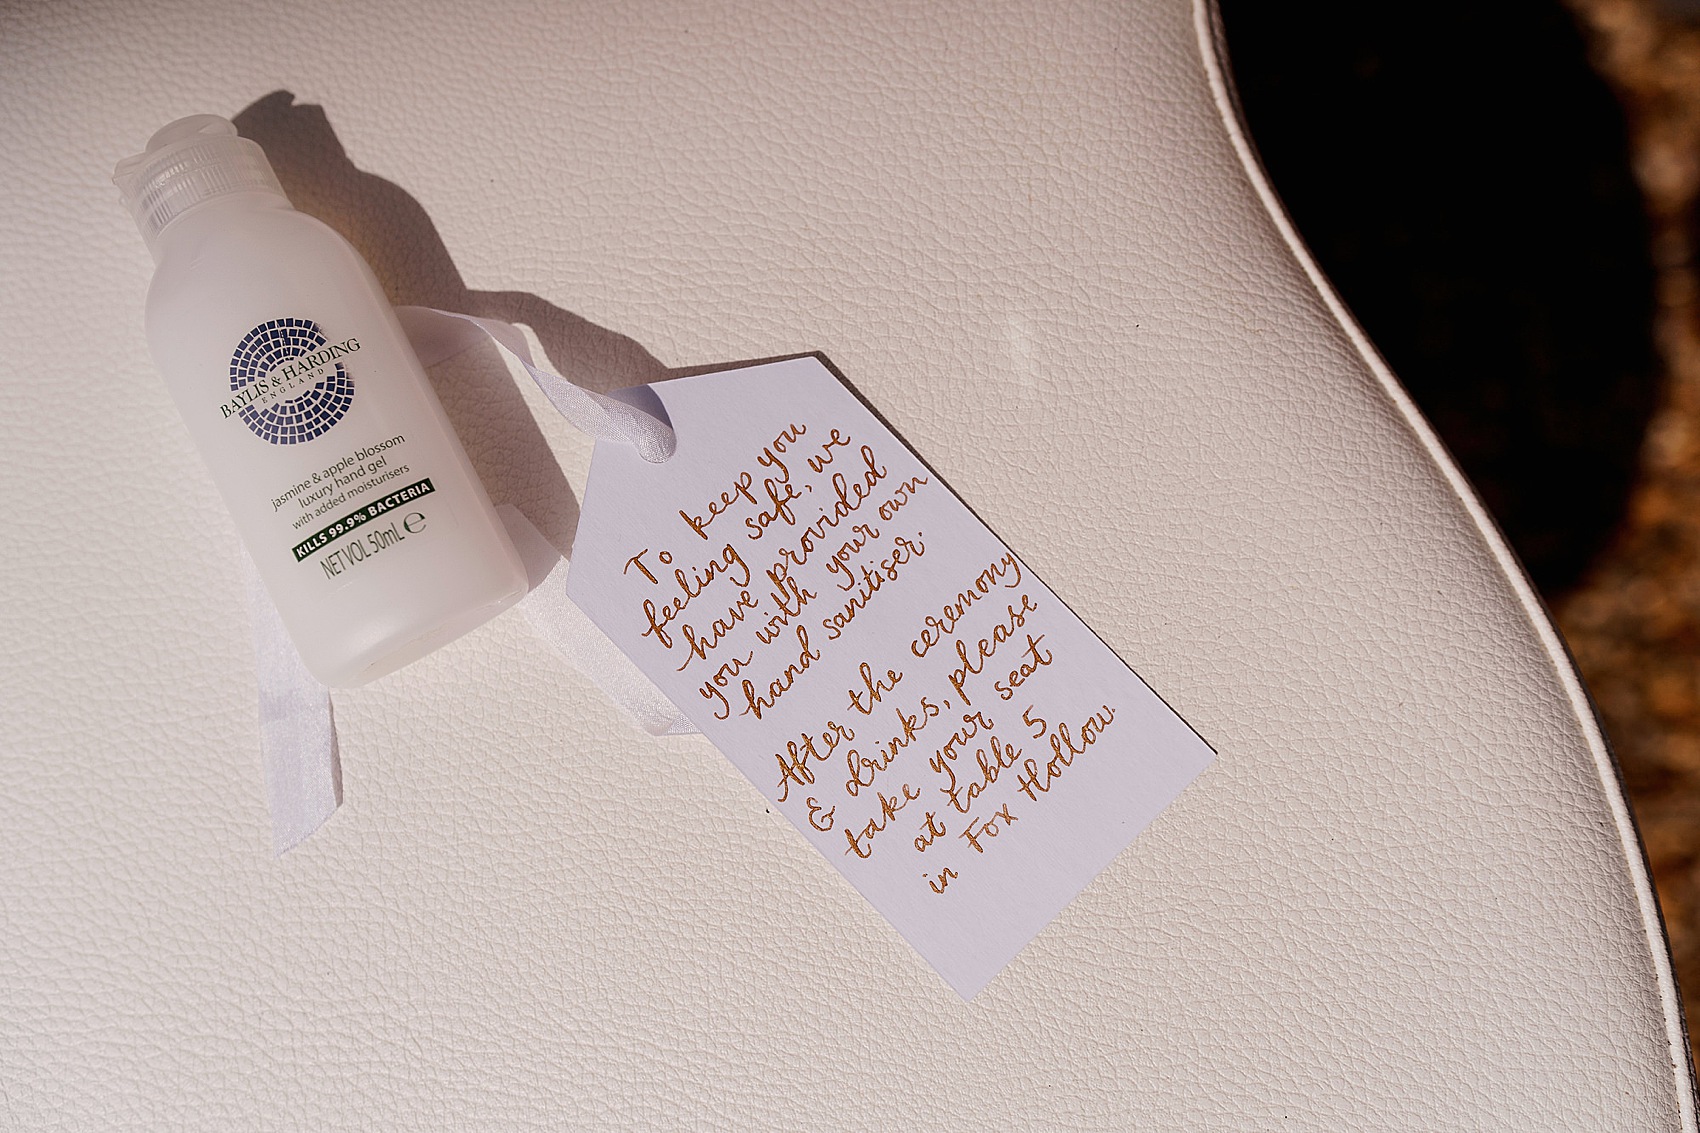 BAYLIS & HARDING
ENGLAND
jasmine & apple blossom
luxury hand gel
with added moisturisers
KILLS 99.9% BACTERIA
NET VOL 50mL ℮
To keep you
feeling safe, we
have provided
you with your own
hand sanitiser.
After the ceremony
& drinks, please
take your seat
at table 5
in Fox Hollow.